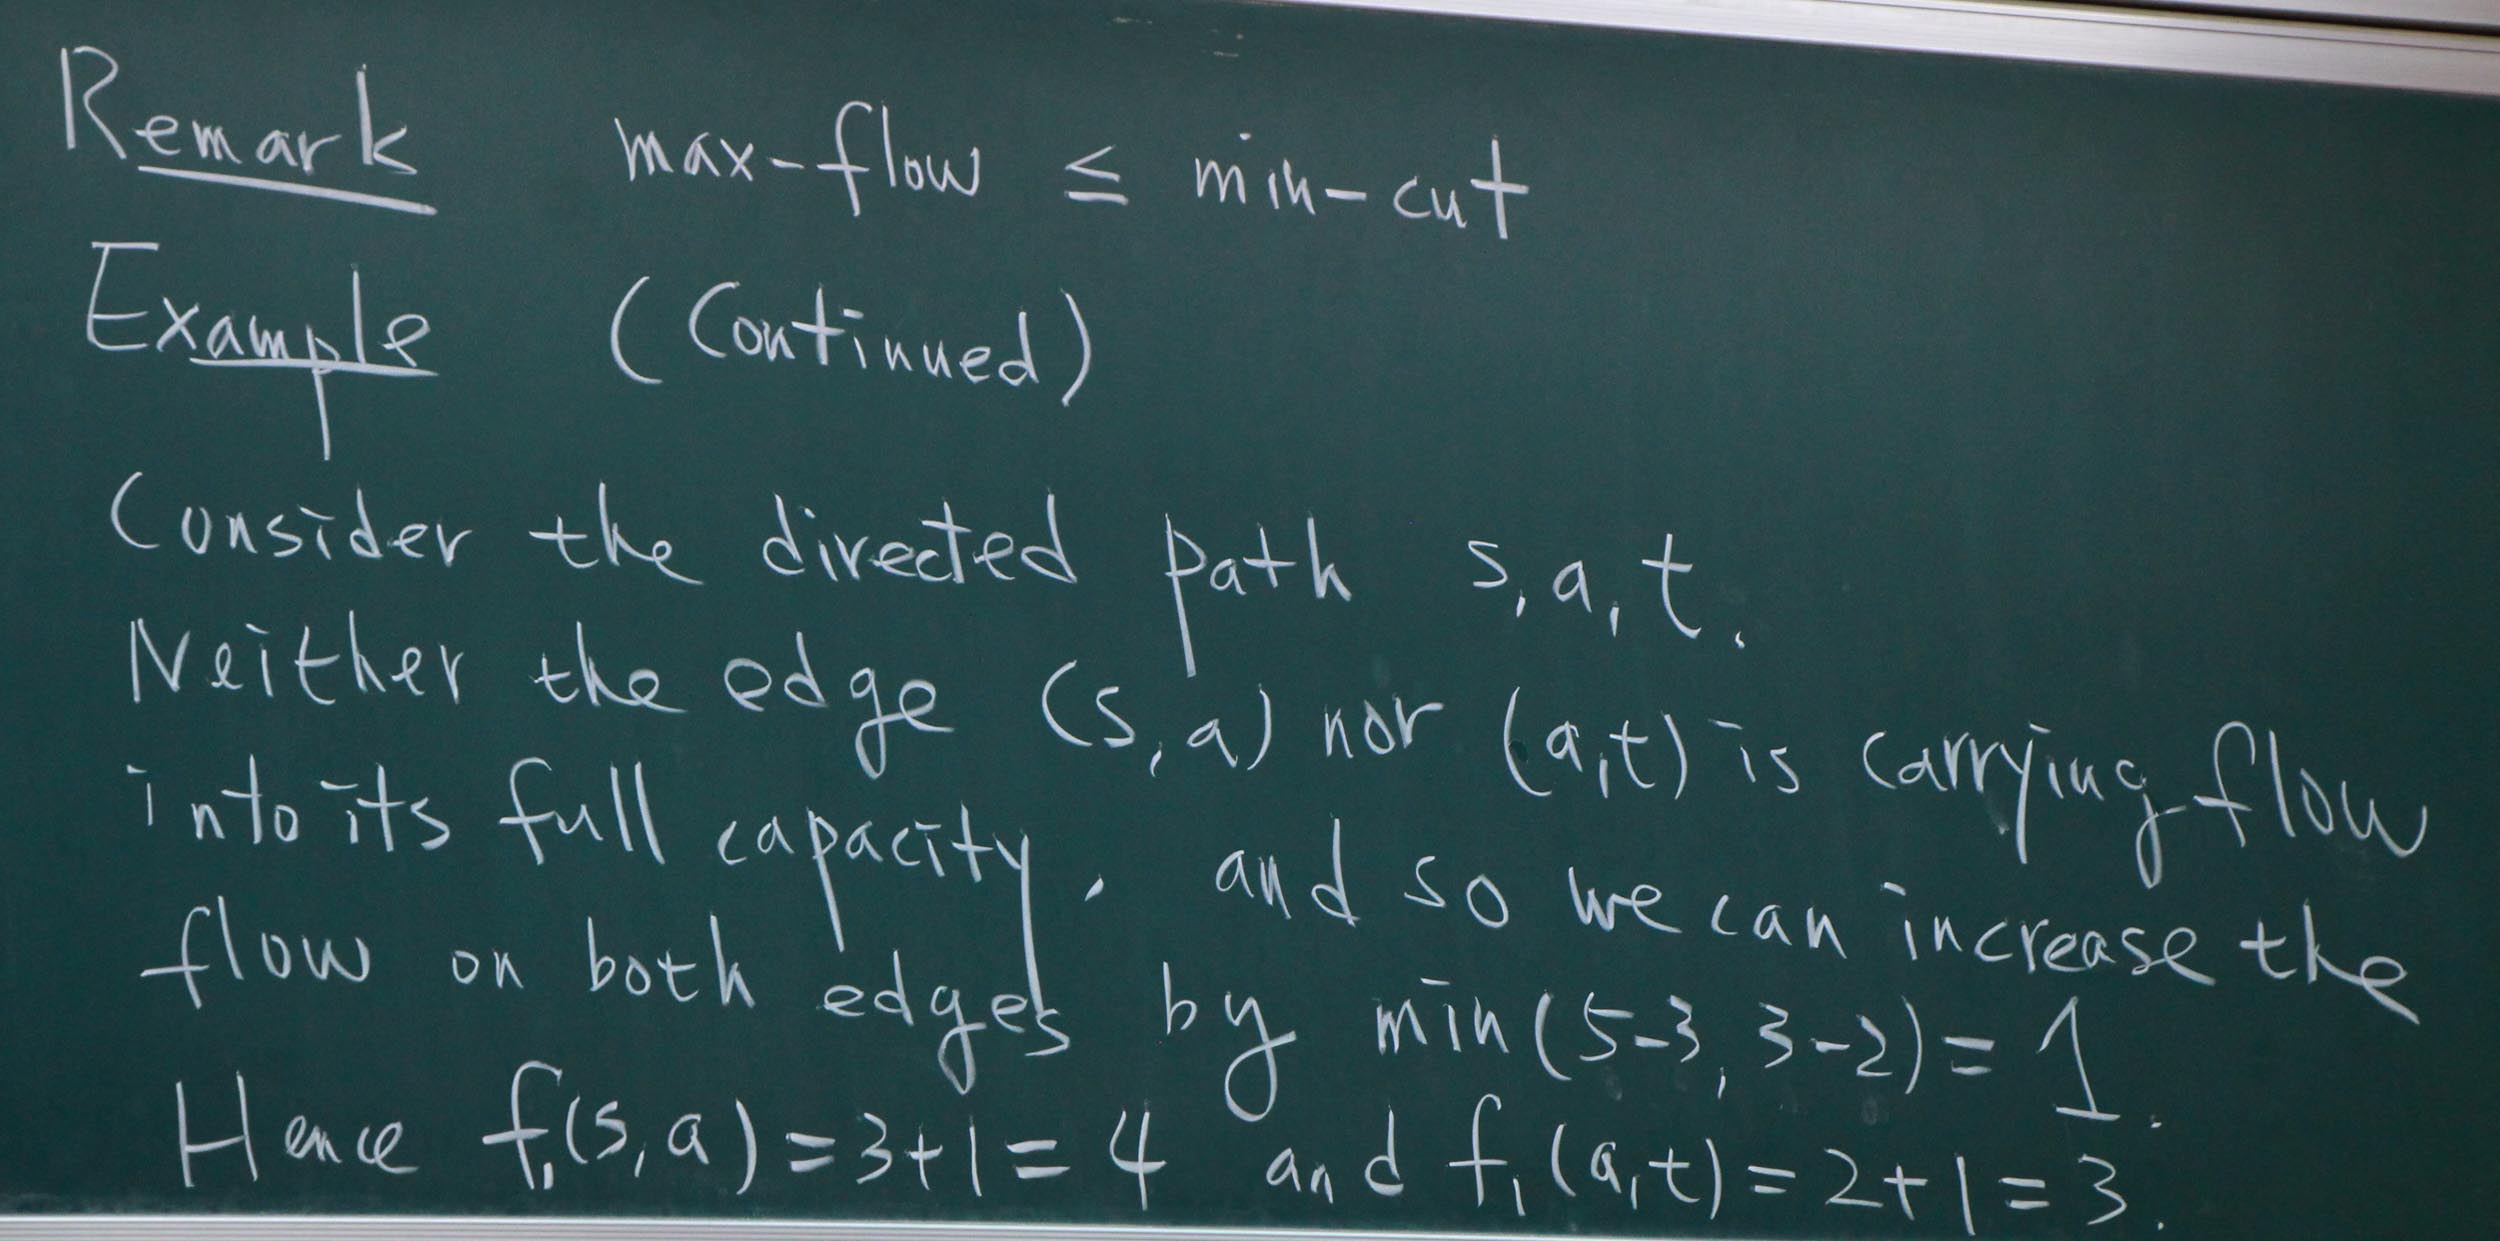 Remark max-flow ≤ min-cut
Example (Continued)
Consider the directed path s, a, t.
Neither the edge (s, a) nor (a, t) is carrying flow
into its full capacity, and so we can increase the
flow on both edges by min(5-3, 3-2) = 1.
Hence f₁(s, a) = 3+1 = 4 and f₁(a, t) = 2+1 = 3.